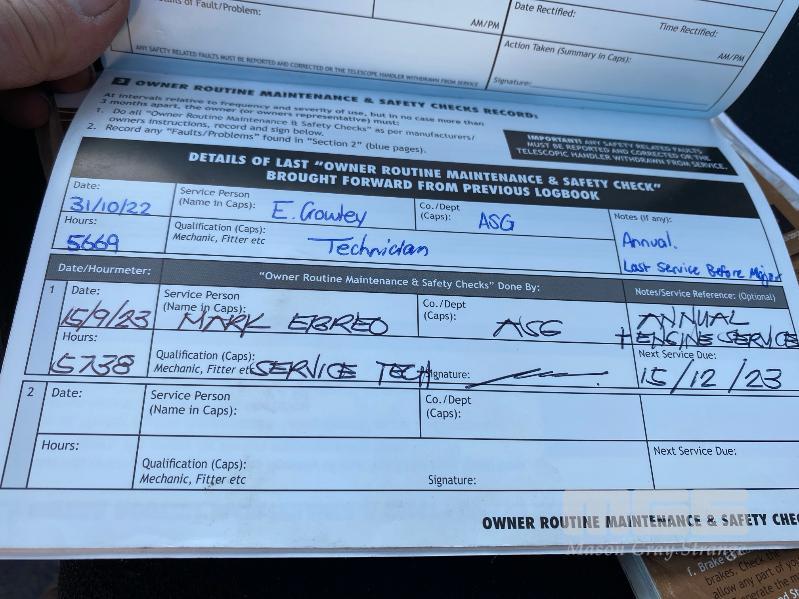 of Fault/Problem:
AM/PM
Date Rectified:
Time Rectified:
AM/PM
Action Taken (Summary in Caps):
Signature:
ANY SAFETY RELATED FAULTS MUST BE REPORTED AND CORRECTED OR THE TELESCOPE HANDLER WITHDRAWN FROM SERVICE
3 OWNER ROUTINE MAINTENANCE & SAFETY CHECKS RECORD:
At intervals relative to frequency and severity of use, but in no case more than
3 months apart, the owner (or owners representative) must:
1. Do all "Owner Routine Maintenance & Safety Checks" as per manufacturers/
owners instructions, record and sign below.
2. Record any "Faults/Problems" found in "Section 2" (blue pages).
IMPORTANT! ANY SAFETY RELATED FAULTS
MUST BE REPORTED AND CORRECTED OR THE
TELESCOPIC HANDLER WITHDRAWN FROM SERVICE.
DETAILS OF LAST "OWNER ROUTINE MAINTENANCE & SAFETY CHECK"
BROUGHT FORWARD FROM PREVIOUS LOGBOOK
Date:
31/10/22
Service Person
(Name in Caps):
E. Crowley
Co./Dept
(Caps):
ASG
Notes (if any):
Annual.
Last Service Before Major
Hours:
5669
Qualification (Caps):
Mechanic, Fitter etc
Technician
Date/Hourmeter:
"Owner Routine Maintenance & Safety Checks" Done By:
Notes/Service Reference: (Optional)
1
Date:
15/9/23
Service Person
(Name in Caps):
MARK EBREO
Co./Dept
(Caps):
ASG
ANNUAL
+ENGINE SERVICE
Hours:
5738
Qualification (Caps):
Mechanic, Fitter etc
SERVICE TECH
Signature:
Next Service Due:
15/12/23
2
Date:
Service Person
(Name in Caps):
Co./Dept
(Caps):
Hours:
Qualification (Caps):
Mechanic, Fitter etc
Signature:
Next Service Due:
OWNER ROUTINE MAINTENANCE & SAFETY CHE
MGS
Mason Gray Strange
f. Brake
brakes. Check
allow any part of yo